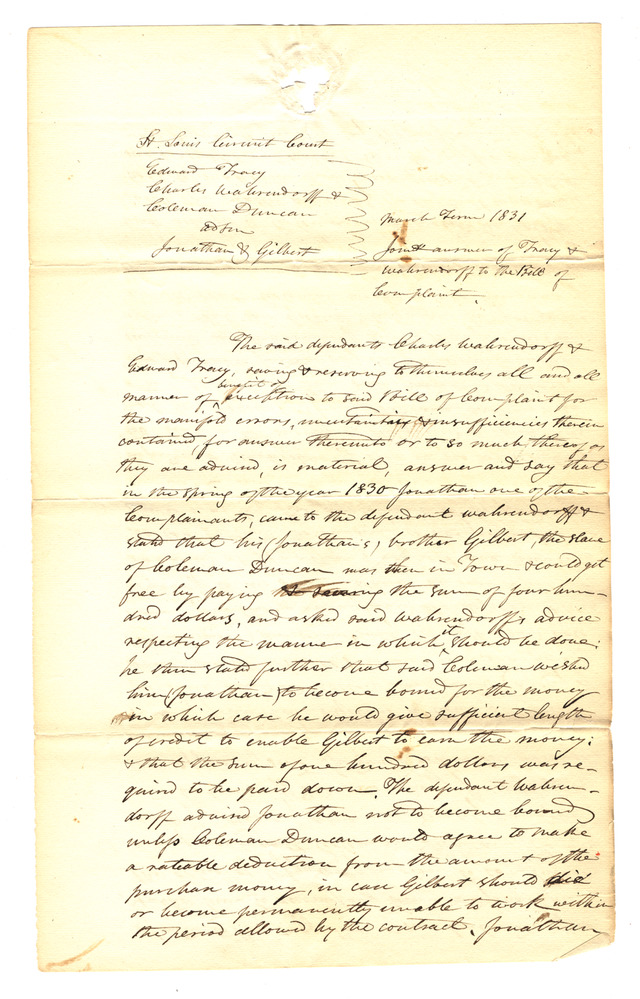 St. Louis Circuit Court
Edward Tracy
Charles Wahrendorff &
Coleman Duncan
adsm
Jonathan & Gilbert
March Term 1831
Joint answer of Tracy &
Wahrendorff to the Bill of
Complaint.
The said defendants Charles Wahrendorff &
Edward Tracy, saving & reserving to themselves all and all
manner of benefit of exception to said Bill of Complaint for
the manifold errors, uncertainties & insufficiencies therein
contained, for answer thereunto or to so much thereof as
they are advised, is material, answer and say that
in the spring of the year 1830 Jonathan one of the
Complainants, came to the defendant Wahrendorff &
stated that his (Jonathan's) brother Gilbert, the slave
of Coleman Duncan was then in Town & could get
free by paying the sum of four hun-
dred dollars, and asked said Wahrendorff's advice
respecting the manner in which it should be done:
he then stated further that said Coleman wished
him (Jonathan) to become bound for the money
in which case he would give sufficient length
of credit to enable Gilbert to earn the money:
& that the sum of one hundred dollars was re-
quired to be paid down. The defendant Wahren-
dorff advised Jonathan not to become bound
unless Coleman Duncan would agree to make
a rateable deduction from the amount of the
purchase money, in case Gilbert should die
or become permanently unable to work within
the period allowed by the contract. Jonathan